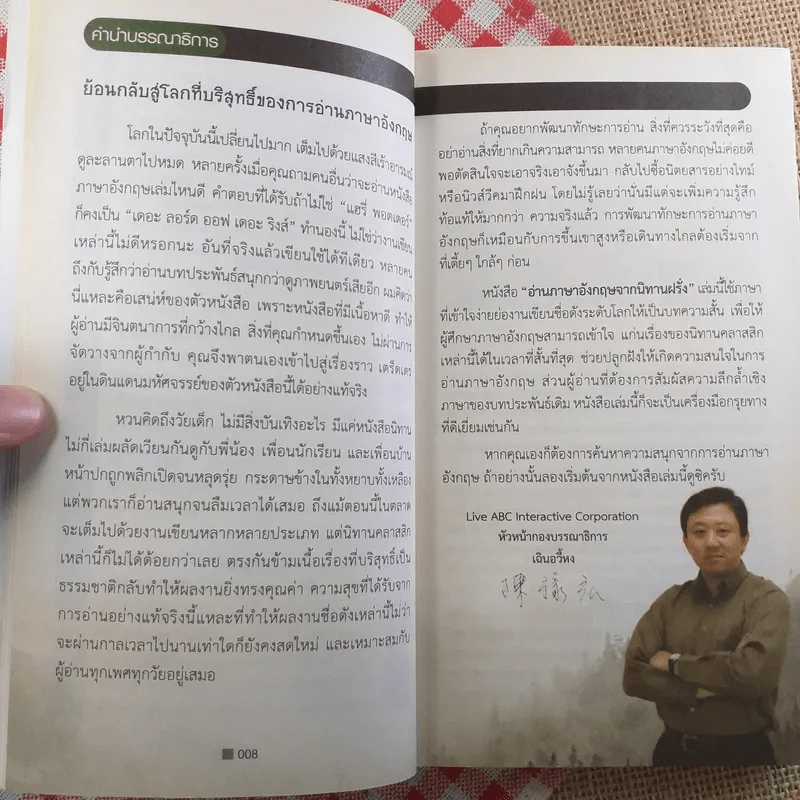 คำนำบรรณาธิการ
ย้อนกลับสู่โลกที่บริสุทธิ์ของการอ่านภาษาอังกฤษ
โลกในปัจจุบันนี้เปลี่ยนไปมาก เต็มไปด้วยแสงสีเร้าอารมณ์
ดูละลานตาไปหมด หลายครั้งเมื่อคุณถามคนอื่นว่าจะอ่านหนังสือ
ภาษาอังกฤษเล่มไหนดี คำตอบที่ได้รับถ้าไม่ใช่ “แฮรี่ พอตเตอร์”
ก็คงเป็น “เดอะ ลอร์ด ออฟ เดอะ ริงส์” ทำนองนี้ ไม่ใช่ว่างานเขียน
เหล่านี้ไม่ดีหรอกนะ อันที่จริงแล้วเขียนใช้ได้ทีเดียว หลายคน
ถึงกับรู้สึกว่าอ่านบทประพันธ์สนุกกว่าดูภาพยนตร์เสียอีก ผมคิดว่า
นี่แหละคือเสน่ห์ของตัวหนังสือ เพราะหนังสือที่มีเนื้อหาดี ทำให้
ผู้อ่านมีจินตนาการที่กว้างไกล สิ่งที่คุณกำหนดขึ้นเอง ไม่ผ่านการ
จัดวางจากผู้กำกับ คุณจึงพาตนเองเข้าไปสู่เรื่องราว เตร็ดเตร่
อยู่ในดินแดนมหัศจรรย์ของตัวหนังสือนี้ได้อย่างแท้จริง
หวนคิดถึงวัยเด็ก ไม่มีสิ่งบันเทิงอะไร มีแค่หนังสือนิทาน
ไม่กี่เล่มผลัดเวียนกันดูกับพี่น้อง เพื่อนนักเรียน และเพื่อนบ้าน
หน้าปกถูกพลิกเปิดจนหลุดรุ่ย กระดาษข้างในทั้งหยาบทั้งเหลือง
แต่พวกเราก็อ่านสนุกจนลืมเวลาได้เสมอ ถึงแม้ตอนนี้ในตลาด
จะเต็มไปด้วยงานเขียนหลากหลายประเภท แต่นิทานคลาสสิก
เหล่านี้ก็ไม่ได้ด้อยกว่าเลย ตรงกันข้ามเนื้อเรื่องที่บริสุทธิ์เป็น
ธรรมชาติกลับทำให้ผลงานยิ่งทรงคุณค่า ความสุขที่ได้รับจาก
การอ่านอย่างแท้จริงนี้แหละที่ทำให้ผลงานชื่อดังเหล่านี้ไม่ว่า
จะผ่านกาลเวลาไปนานเท่าใดก็ยังคงสดใหม่ และเหมาะสมกับ
ผู้อ่านทุกเพศทุกวัยอยู่เสมอ
008
ถ้าคุณอยากพัฒนาทักษะการอ่าน สิ่งที่ควรระวังที่สุดคือ
อย่าอ่านสิ่งที่ยากเกินความสามารถ หลายคนภาษาอังกฤษไม่ค่อยดี
พอตัดสินใจจะเอาจริงเอาจังขึ้นมา กลับไปซื้อนิตยสารอย่างไทม์
หรือนิวส์วีคมาฝึกฝน โดยไม่รู้เลยว่านั่นมีแต่จะเพิ่มความรู้สึก
ท้อแท้ให้มากกว่า ความจริงแล้ว การพัฒนาทักษะการอ่านภาษา
อังกฤษก็เหมือนกับการขึ้นเขาสูงหรือเดินทางไกลต้องเริ่มจาก
ที่เตี้ยๆ ใกล้ๆ ก่อน
หนังสือ “อ่านภาษาอังกฤษจากนิทานฝรั่ง” เล่มนี้ใช้ภาษา
ที่เข้าใจง่ายย่องานเขียนชื่อดังระดับโลกให้เป็นบทความสั้น เพื่อให้
ผู้ศึกษาภาษาอังกฤษสามารถเข้าใจ แก่นเรื่องของนิทานคลาสสิก
เหล่านี้ได้ในเวลาที่สั้นที่สุด ช่วยปลูกฝังให้เกิดความสนใจในการ
อ่านภาษาอังกฤษ ส่วนผู้อ่านที่ต้องการสัมผัสความลึกล้ำเชิง
ภาษาของบทประพันธ์เดิม หนังสือเล่มนี้ก็จะเป็นเครื่องมือกรุยทาง
ที่ดีเยี่ยมเช่นกัน
หากคุณเองก็ต้องการค้นหาความสนุกจากการอ่านภาษา
อังกฤษ ถ้าอย่างนั้นลองเริ่มต้นจากหนังสือเล่มนี้ดูซิครับ
Live ABC Interactive Corporation
หัวหน้ากองบรรณาธิการ
เฉินอวี้หง